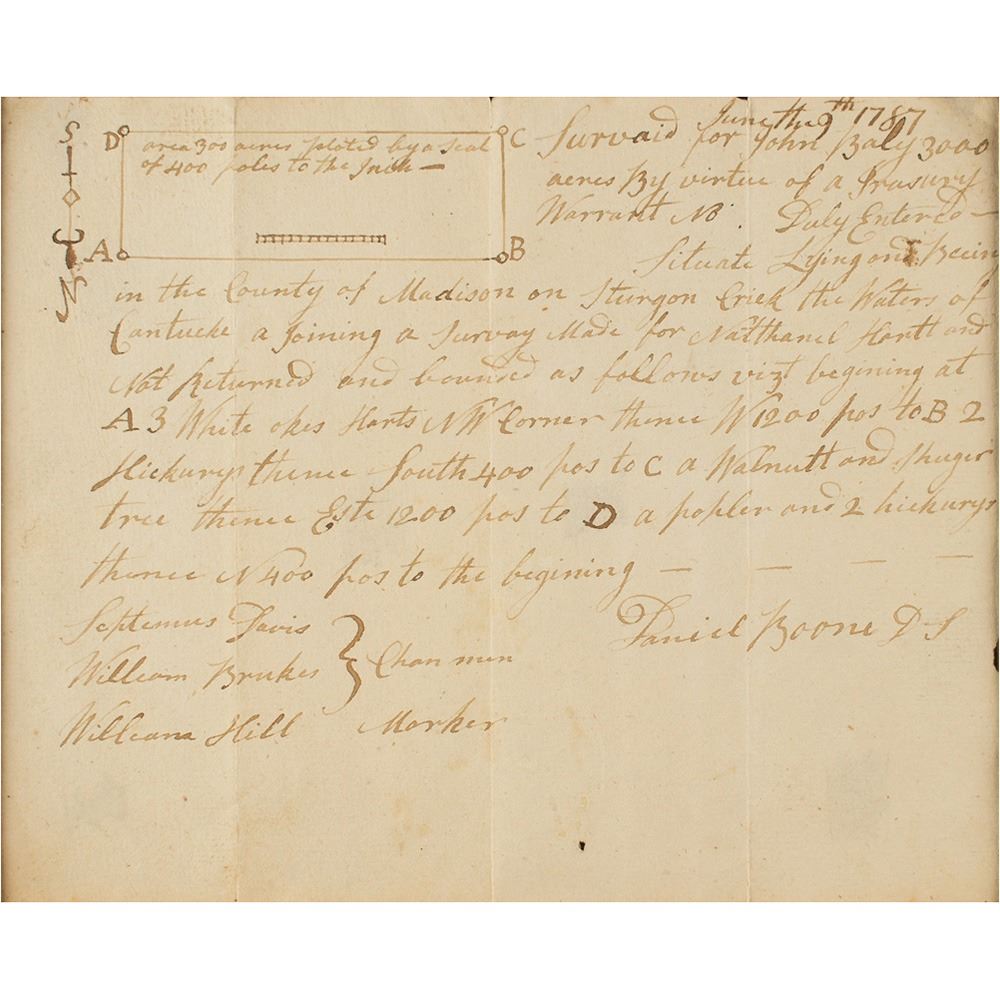 June the 9th 1787
S
D
C
area 300 acres ploted by a Scal
of 400 poles to the Inch —
A
B
N
Survaid for John Baly 3000
acres By virtue of a Trasury
Warrant No. Duly Entered —
Situate Lying and Beein
in the County of Madison on Sturgon Crick the Waters of
Cantucke a Joining a Survay Made for Natthanel Hartt and
Not Returned and bounded as follows vizt begining at
A 3 White okes Harts NW Corner thence W 1200 pos to B 2
Hickurys thence South 400 pos to C a Walnutt and Shuger
tree thence Este 1200 pos to D a popler and 2 hickurys
thence N 400 pos to the begining — — — —
Septemus Davis
William Brukes } Chan men
William Hill Marker
Daniel Boone D S